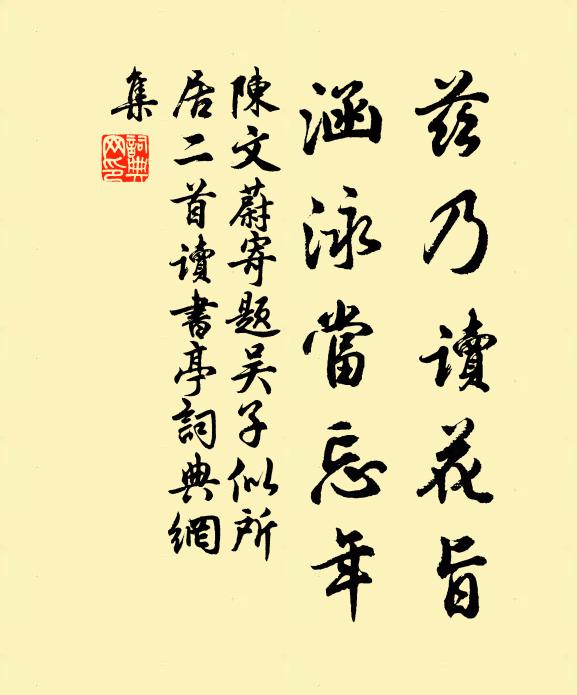 茲乃讀花旨
涵泳當忘年
陳文蔚寄題吴子似所
居二首讀書亭詞典網
集
詞典
网印